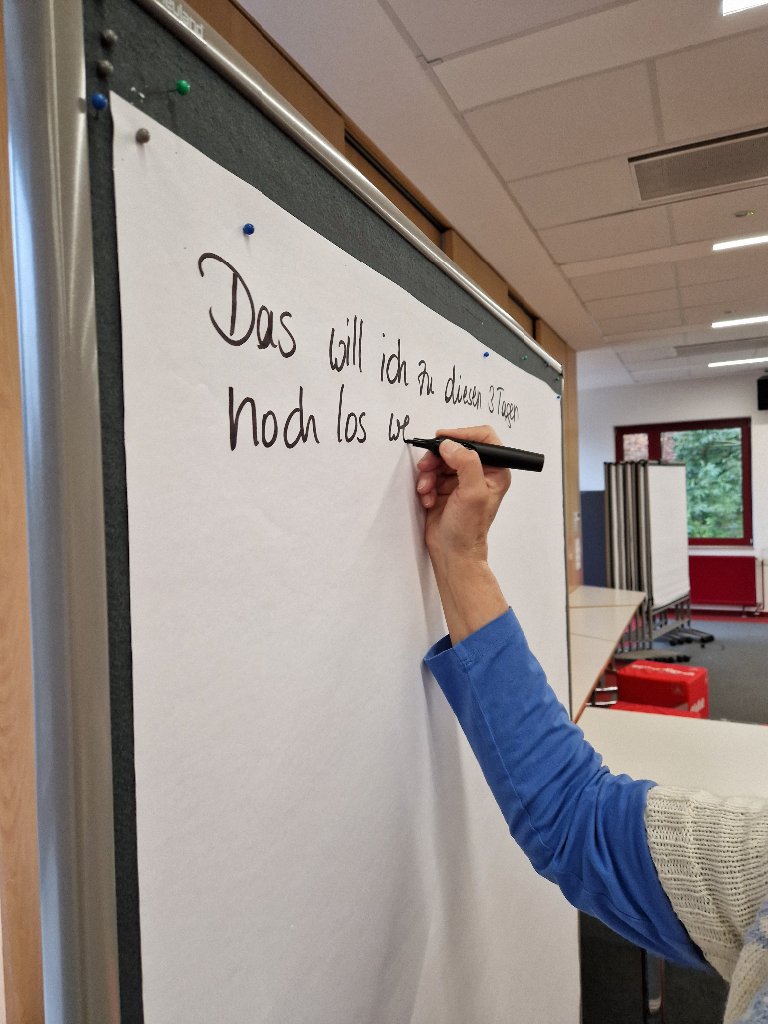 Das will ich zu diesen 3 Tagen
noch los we